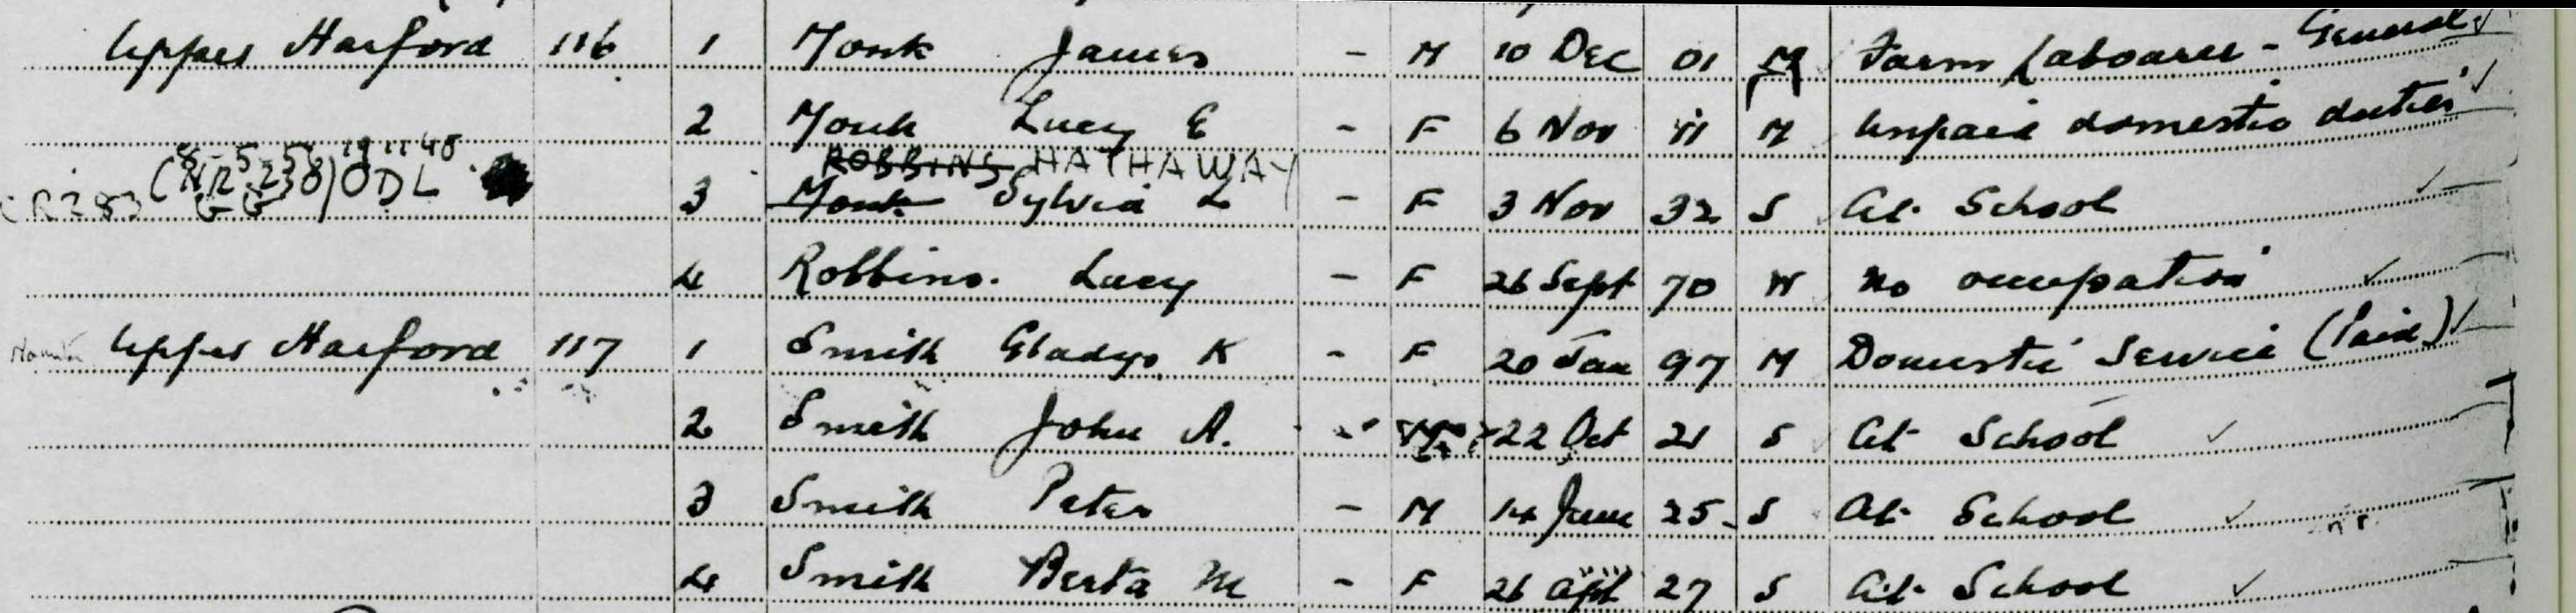 Upper Harford 116 1 Monk James - M 10 Dec 01 M Farm Labourer - General ✓
2 Monk Lucy E - F 6 Nov 11 M Unpaid domestic duties ✓
19 11 48
ROBBINS HATHAWAY
CR283 ODL 3 Monk Sylvia L - F 3 Nov 32 S At School ✓
4 Robbins. Lucy - F 26 Sept 70 W No occupation ✓
Upper Harford 117 1 Smith Gladys K - F 20 Jan 97 M Domestic Service (Paid) ✓
2 Smith John A. - M 22 Oct 21 S At School ✓
3 Smith Peter - M 14 June 25 S At School ✓
4 Smith Berta M - F 26 Apl 27 S At School ✓